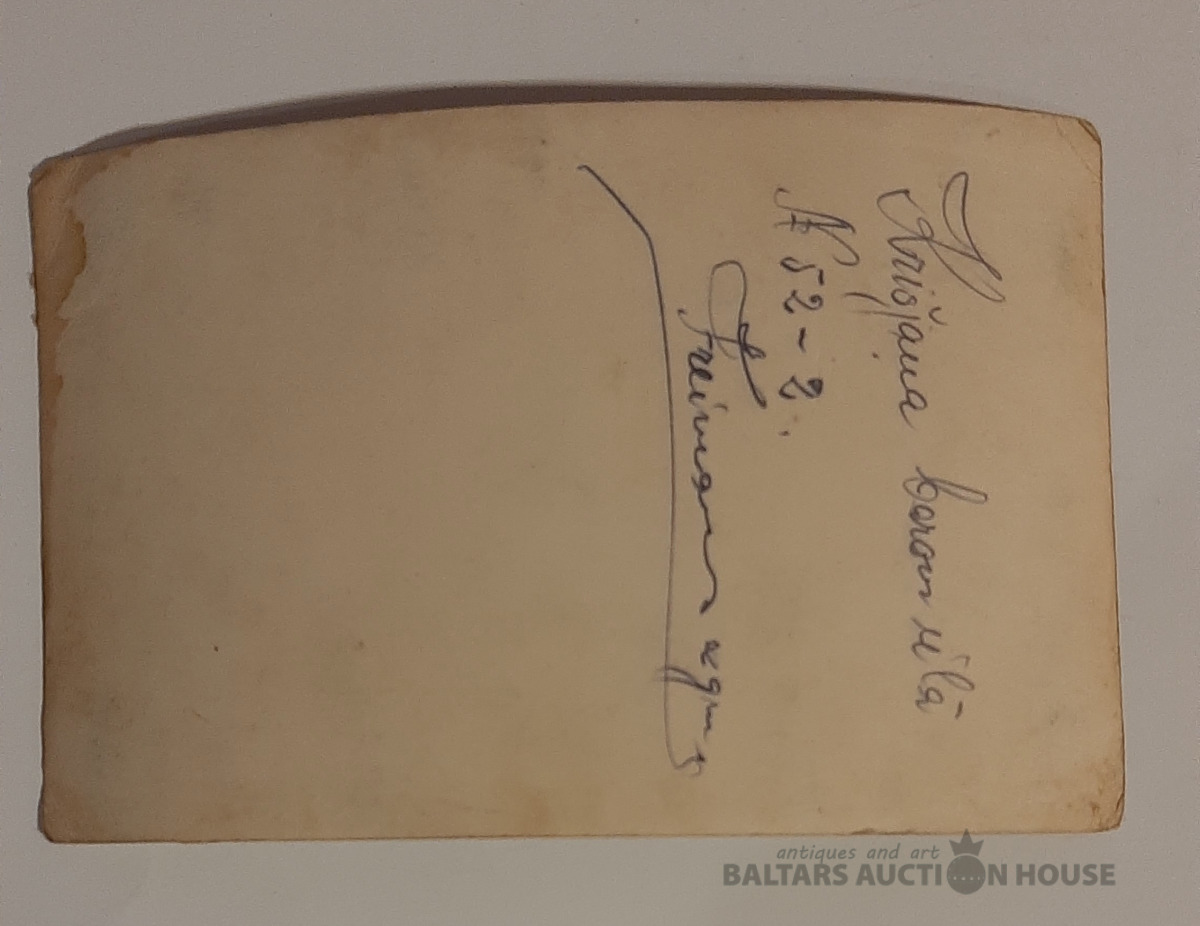 Krišjaņa barona ilā
№ 52-2.
Freiman
antiques and art
BALTARS AUCTION HOUSE